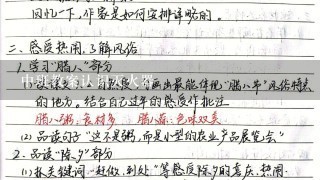 回忆一下,作家是如何安排详略的。
二、感受热闹,了解风俗
1.学习"腊八"部分
中班教案认识灭火器
画出最能体现"腊八节"风俗特点
的地方。结合自己过年的感受作批注
腊八粥:食材多 腊八蒜:色味双美
(2)品读句子"这不是粥,而是小型的农业产品展览会"
2.品读"除夕"部分
(1)抓关键词"赶做、到处"等感受除夕的喜庆、热闹